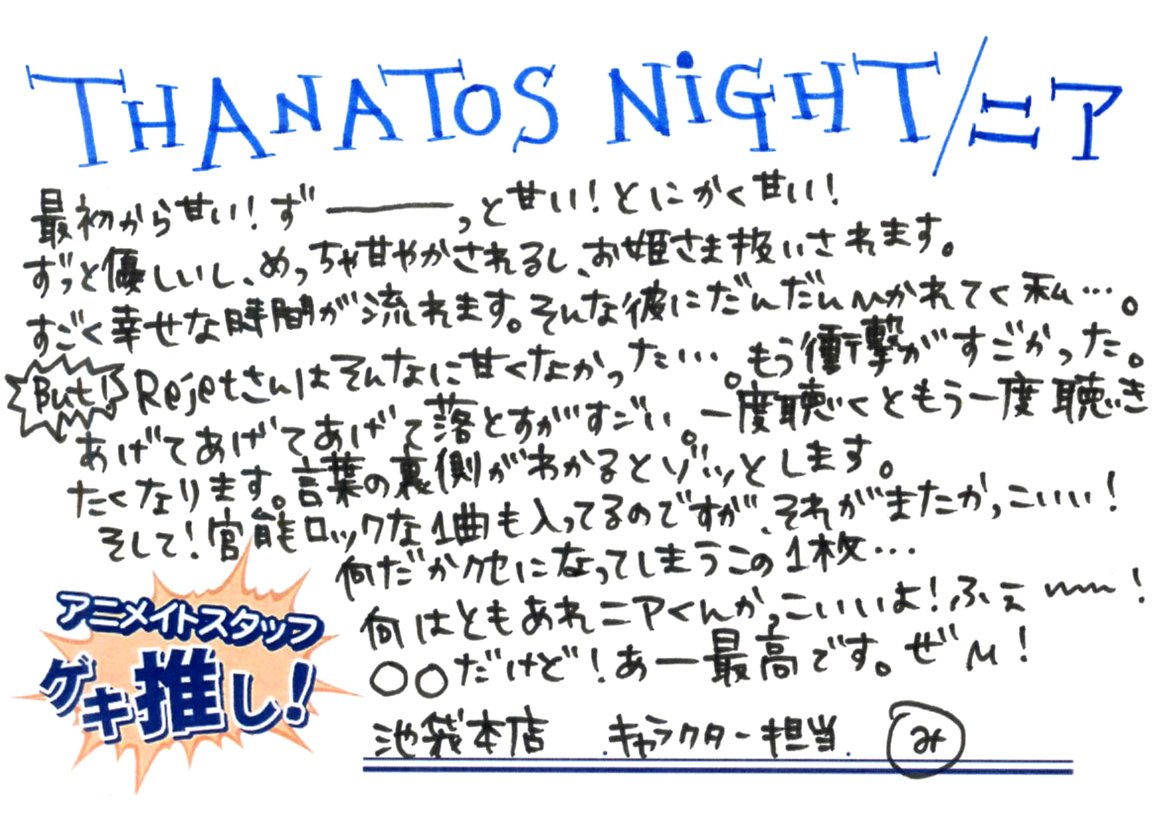 THANATOS NiGHT/ニア
最初から甘い！ず────っと甘い！とにかく甘い！
ずっと優しいし、めっちゃ甘やかされるし、お姫さま扱いされます。
すごく幸せな時間が流れます。そんな彼にだんだんひかれてく私…。
But!! Rejetさんはそんなに甘くなかった…。もう衝撃がすごかった。
あげてあげてあげて落とすがすごい。一度聴くともう一度聴き
たくなります。言葉の裏側がわかるとゾッとします。
そして！官能ロックな1曲も入ってるのですが、それがまたかっこいい！
何だかクセになってしまうこの1枚…
何はともあれニアくんかっこいいよ！ふぇ〜〜！
○○だけど！あー最高です。ぜひ！
アニメイトスタッフ
ゲキ推し！
池袋本店 キャラクター担当 み